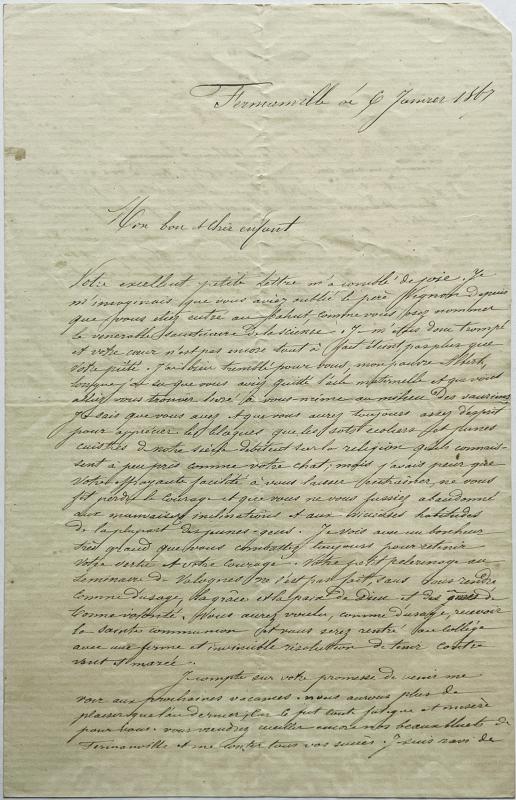 Fermanville le 6 Janvier 1867
Mon bon & cher enfant
Votre excellent petite lettre m'a comblé de joie. Je
m'imaginais que vous aviez oublié le père depuis
que vous étiez entré au bahut comme vous osez nommer
le vénérable sanctuaire de la science. Je m'étais donc trompé
et votre cœur n'est pas encore tout à fait éteint pas plus que
votre piété. J'ai bien tremblé pour vous, mon pauvre Albert,
lorsque j'ai su que vous aviez quitté l'aile maternelle et que vous
alliez vous trouver livré à vous même au milieu des vauriens.
Je sais que vous avez & que vous aurez toujours assez d'esprit
pour apprécier les blagues que les sots écoliers et jeunes
cuistres de notre siècle débitent sur la religion qu'ils connais-
sent à peu près comme votre chat; mais j'avais peur que
votre effroyante facilité à vous laisser entraîner ne vous
fit perdre le courage et que vous ne vous fussiez abandonné
aux mauvaises inclinations et aux vicieuses habitudes
de la plupart des jeunes gens. Je vois avec un bonheur
très grand que vous combattez toujours pour retenir
votre vertu et votre courage. Votre petit pelerinage au
Seminaire de Valognes ne s'est pas fait sans vous rendre
comme d'usage, la grâce et la paix de Dieu et des âmes de
bonne volonté. Vous aurez voulu, comme d'usage, recevoir
la sainte communion et vous serez rentré au collège
avec une ferme et invincible résolution de tenir contre
vent et marée.
Je compte sur votre promesse de venir me
voir aux prochaines vacances. nous aurons plus de
plaisir que l'an dernier, car ce fut toute fatigue et misère
pour vous. vous viendrez cueillir encore nos beaux bluets de
Fermanville et me conter tous vos succès. Je suis ravi de